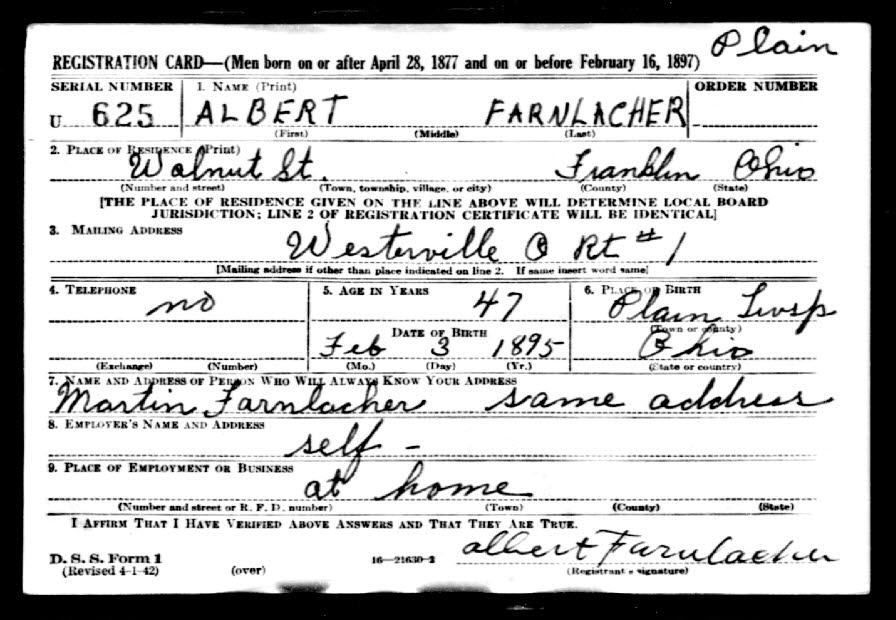 Plain
REGISTRATION CARD—(Men born on or after April 28, 1877 and on or before February 16, 1897)
SERIAL NUMBER 1. NAME (Print) ORDER NUMBER
U 625 ALBERT FARNLACHER
(First) (Middle) (Last)
2. PLACE OF RESIDENCE (Print)
Walnut St. Franklin Ohio
(Number and street) (Town, township, village, or city) (County) (State)
[THE PLACE OF RESIDENCE GIVEN ON THE LINE ABOVE WILL DETERMINE LOCAL BOARD
JURISDICTION; LINE 2 OF REGISTRATION CERTIFICATE WILL BE IDENTICAL]
3. MAILING ADDRESS
Westerville O Rt # 1
[Mailing address if other than place indicated on line 2. If same insert word same]
4. TELEPHONE 5. AGE IN YEARS 6. PLACE OF BIRTH
no 47 Plain Twsp
DATE OF BIRTH (Town or county)
Feb 3 1895 Ohio
(Exchange) (Number) (Mo.) (Day) (Yr.) (State or country)
7. NAME AND ADDRESS OF PERSON WHO WILL ALWAYS KNOW YOUR ADDRESS
Martin Farnlacher same address
8. EMPLOYER'S NAME AND ADDRESS
self -
9. PLACE OF EMPLOYMENT OR BUSINESS
at home
(Number and street or R. F. D. number) (Town) (County) (State)
I AFFIRM THAT I HAVE VERIFIED ABOVE ANSWERS AND THAT THEY ARE TRUE.
albert Farnlacher
D. S. S. Form 1 16—21630-2
(Revised 4-1-42) (over) (Registrant's signature)